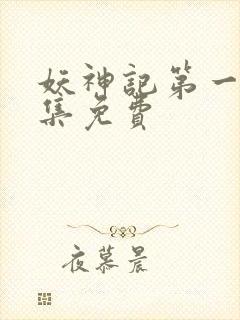 妖神記第一
集免費
夜慕晨